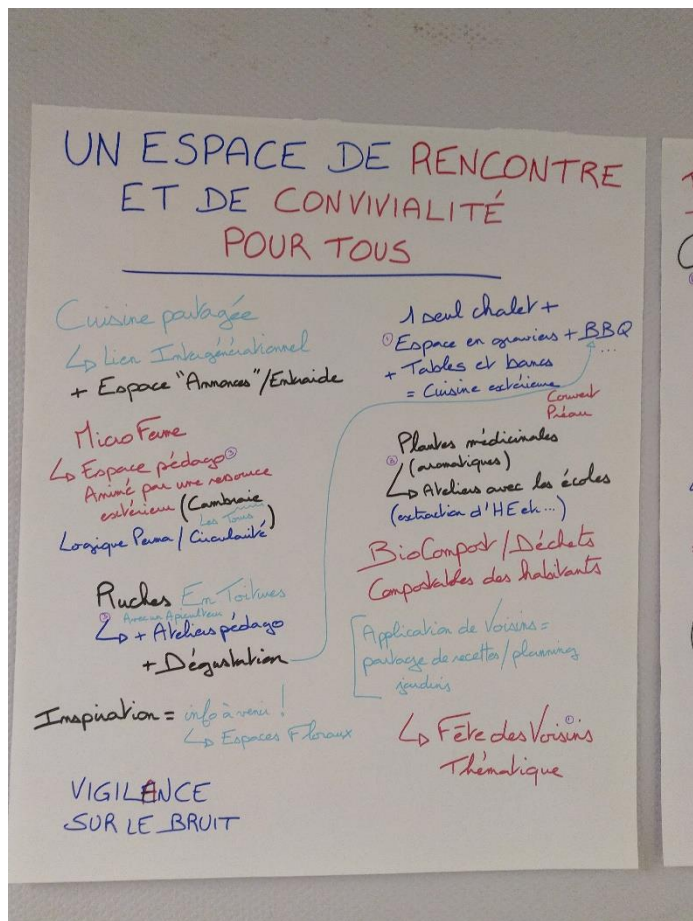 UN ESPACE DE RENCONTRE
ET DE CONVIVIALITÉ
POUR TOUS
Cuisine partagée
↳ Lien Intergénérationnel
+ Espace "Annonces"/Entraide
Micro Ferme
↳ Espace pédago ③
Animé par une resource
extérieure (Cambraie
Les Tous)
Logique Perma / Circularité
Ruches En Toitures
Avec un Apiculteur
② ↳ + Ateliers pédago
+ Dégustation
Inspiration = info à venir !
↳ Espaces Floraux
VIGILANCE
SUR LE BRUIT
1 seul chalet +
① Espace en graviers + BBQ
...
+ Tables et bancs
= Cuisine extérieure
Couvert
Préau
Plantes médicinales
(aromatiques)
↳ Ateliers avec les écoles
(extraction d'HE etc...)
BioCompost / Déchets
Compostables des habitants
Application de Voisins =
partage de recettes / planning
jardins
↳ Fête des Voisins ①
Thématique